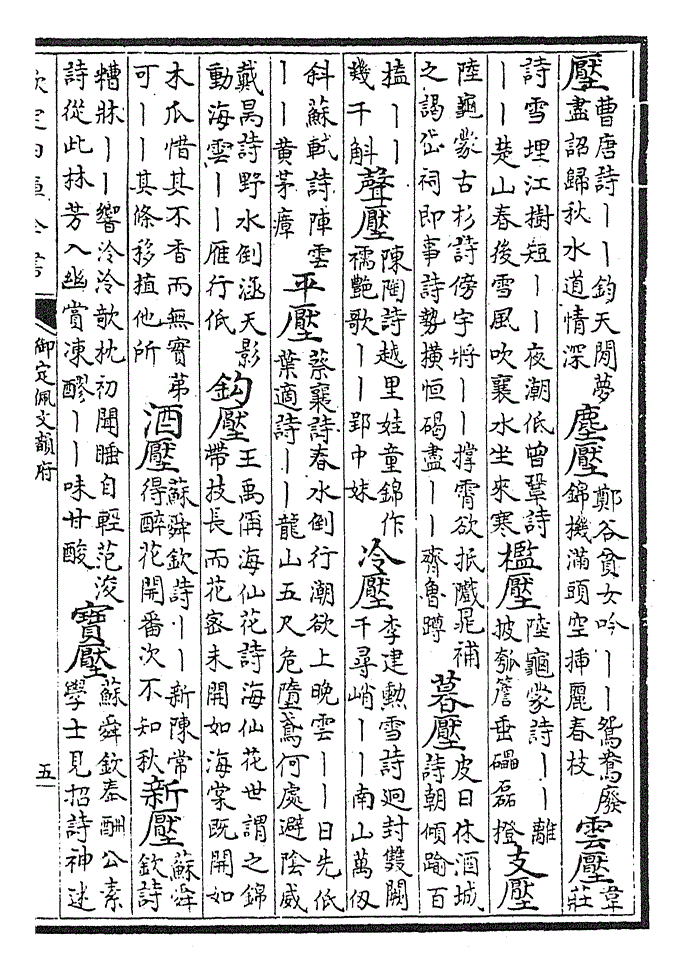 壓
曹唐詩丨丨鈞天閒夢
盡詔歸秋水道情深
塵壓
鄭谷貧女吟丨丨鴛鴦廢
錦機滿頭空揷麗春枝
雲壓
韋
莊
詩雪埋江樹短丨丨夜潮低曾鞏詩
丨丨楚山春後雪風吹襄水坐來寒
檻壓
陸龜蒙詩丨丨離
披瓠簷垂礧磊橙
支壓
陸龜蒙古杉詩傍宇將丨丨撑霄欲抵巇晁補
之謁岱祠即事詩勢橫恒碣盡丨丨齊魯蹲
暮壓
皮日休酒城
詩朝傾踰百
榼丨丨
幾千斛
聲壓
陳陶詩越里娃童錦作
襦艷歌丨丨郢中姝
冷壓
李建勳雪詩迥封雙闕
千尋峭丨丨南山萬仭
斜蘇軾詩陣雲
丨丨黃茅瘴
平壓
蔡襄詩春水倒行潮欲上晚雲丨丨日先低
葉適詩丨丨龍山五尺危墮鳶何處避陰威
戴昺詩野水倒涵天影
動海雲丨丨雁行低
鈎壓
王禹偁海仙花詩海仙花世謂之錦
帶技長而花密未開如海棠既開如
木瓜惜其不香而無實苐
可丨丨其條移植他所
酒壓
蘇舜欽詩丨丨新陳常
得醉花開番次不知秋
新壓
蘇舜
欽詩
糟牀丨丨響泠泠欹枕初聞睡自輕范浚
詩從此林芳入幽賞凍醪丨丨味甘酸
寶壓
蘇舜欽奉酬公素
學士見招詩神迷
欽定四庫全書
御定佩文韻府
五